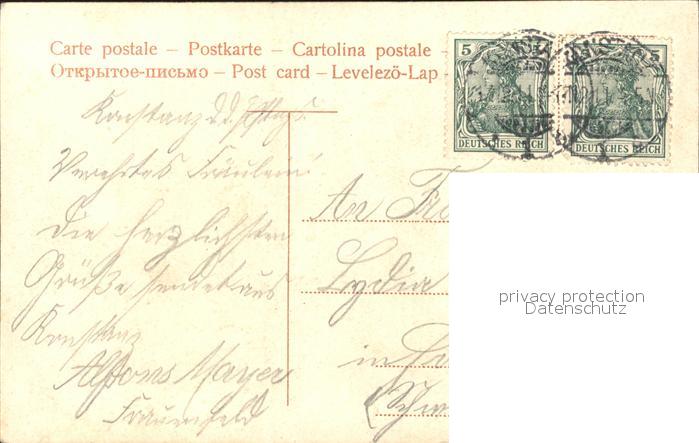 Carte postale – Postkarte – Cartolina postale –
Открытое-письмо – Post card – Levelező-Lap –
5
DEUTSCHES REICH
DEUTSCHES REICH
Konstanz d.d.
Verehrtes Fräulein!
Die herzlichsten
Grüße sendet aus
Konstanz
Alfons Mayer
Frauenfeld
An
Lydia
in
privacy protection
Datenschutz